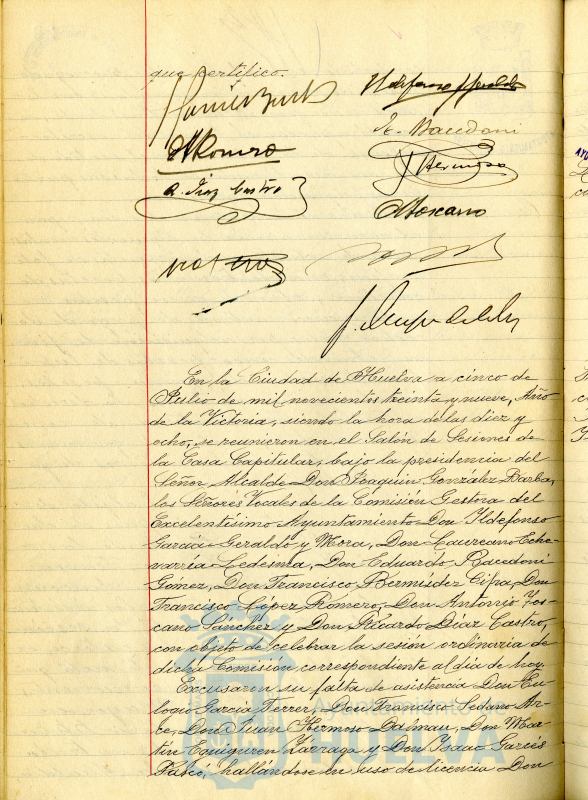 que certifico.
Ildefonso Geraldo
A Romero
E. Bacedoni
J Hermoso
R. Díaz Castro
A Toscano
En la Ciudad de Huelva a cinco de
Julio de mil novecientos treinta y nueve, Año
de la Victoria, siendo la hora de las diez y
ocho, se reunieron en el Salón de Sesiones de
la Casa Capitular, bajo la presidencia del
Señor Alcalde Don Joaquín González Barba,
los Señores Vocales de la Comisión Gestora del
Excelentísimo Ayuntamiento Don Ildefonso
García Geraldo y Mora, Don Laureano Eche-
varría Ledesma, Don Eduardo Bacedoni
Gómez, Don Francisco Bermúdez Cifra, Don
Francisco López Romero, Don Antonio Tos-
cano Sánchez y Don Ricardo Díaz Castro,
con objeto de celebrar la sesión ordinaria de
dicha Comisión correspondiente al día de hoy.
Excusaron su falta de asistencia Don Eu-
logio García Ferrer, Don Francisco Sedano Ar-
ce, Don Juan Hermoso Dalmau, Don Mar-
tín Eguiguren Lárraga y Don Isaac Garcés
hallándose en uso de licencia Don
Ayuntamiento de
HUELVA